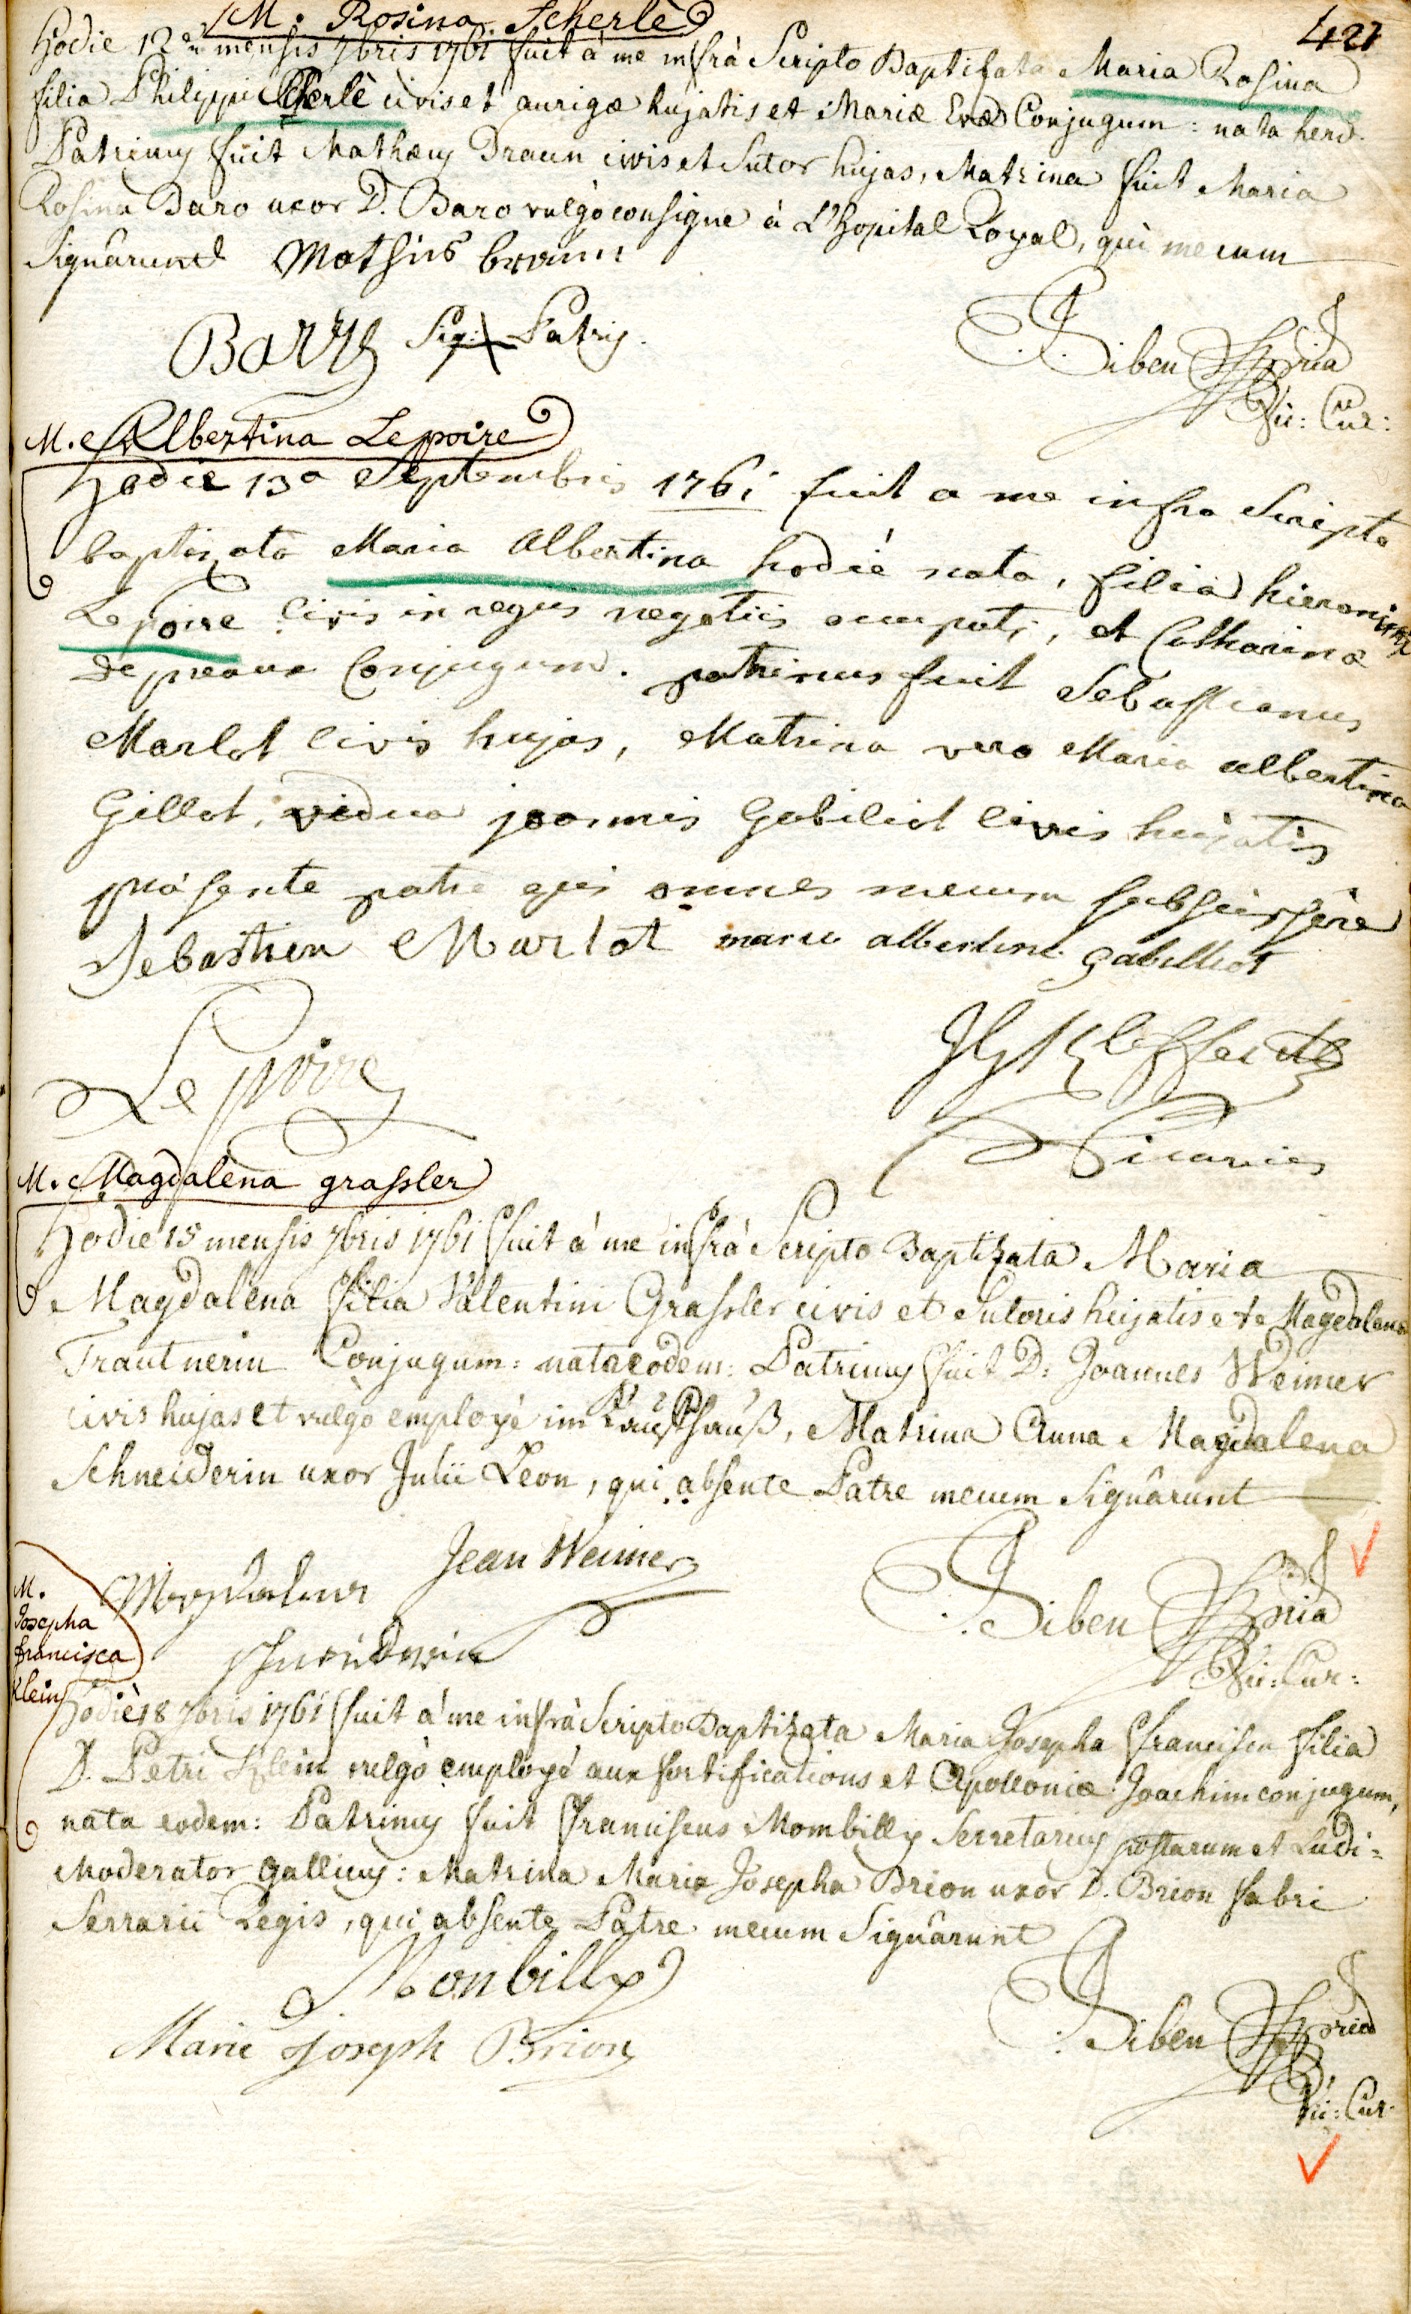 M. Rosina Scherlé
421
Hodie 12â mensis 7bris 1761 fuit à me infrà Scripto Baptisata Maria Rosina
filia Philippi Scherlé civis et aurigæ hujatis et Mariæ Evæ Conjugum: nata heri.
Patrinus fuit Mathæus Braun civis et Sutor hujas, Matrina fuit Maria
Rosina Baro uxor D. Baro vulgò consigne à L'Hopital Royal, qui mecum
Signârunt Mathis braun
Sig: X Patris.
Siben
Vic: Cur:
M. Albertina Lepoire
hodie 13a Septembris 1761 fuit a me infra Scripto
baptizata Maria Albertina hodie nata, filia hieronimi
Lepoire Civis in regiis negotiis occupati, et Catharinæ
Depreaux Conjugum. patrinus fuit Sebastianus
Marlot Civis hujas, Matrina vero Maria albertina
Gillot, vidua joannis Gabiliot Civis hujatis
præsente patre qui omnes mecum subscripsere
Sebastien Marlot marie albertine gabilliot
Le poire
Vicarius
M. Magdalena grassler
Hodie 15 mensis 7bris 1761 fuit à me infrà Scripto Baptizata Maria
Magdalena filia Valentini Grassler civis et Sutoris hujatis et Magdalena
Trautnerin Conjugum: nata eodem: Patrinus fuit D: Joannes Weimer
civis hujas et vulgò employé im Kauffhauß, Matrina Anna Magdalena
Schneiderin uxor Julii Leon, qui absente Patre mecum Signârunt
Jean Weimer
Magdalena
Schneiderin
Siben
Vic: Cur:
M.
Josepha
francisca
Klein
Hodiè 18 7bris 1761 fuit à me infrà Scripto Baptizata Maria Josepha Francisca filia
D. Petri Klein vulgò employé aux fortifications et Apolloniæ Joachim conjugum,
nata eodem: Patrinus fuit Franciscus Mombilly Secretarius postarum et Ludi=
Moderator Gallicus: Matrina Maria Josepha Brion uxor D. Brion fabri
Serrarii Regis, qui absente Patre mecum Signârunt
Monbilly
Marie Joseph Brion
Siben
Vic: Cur: